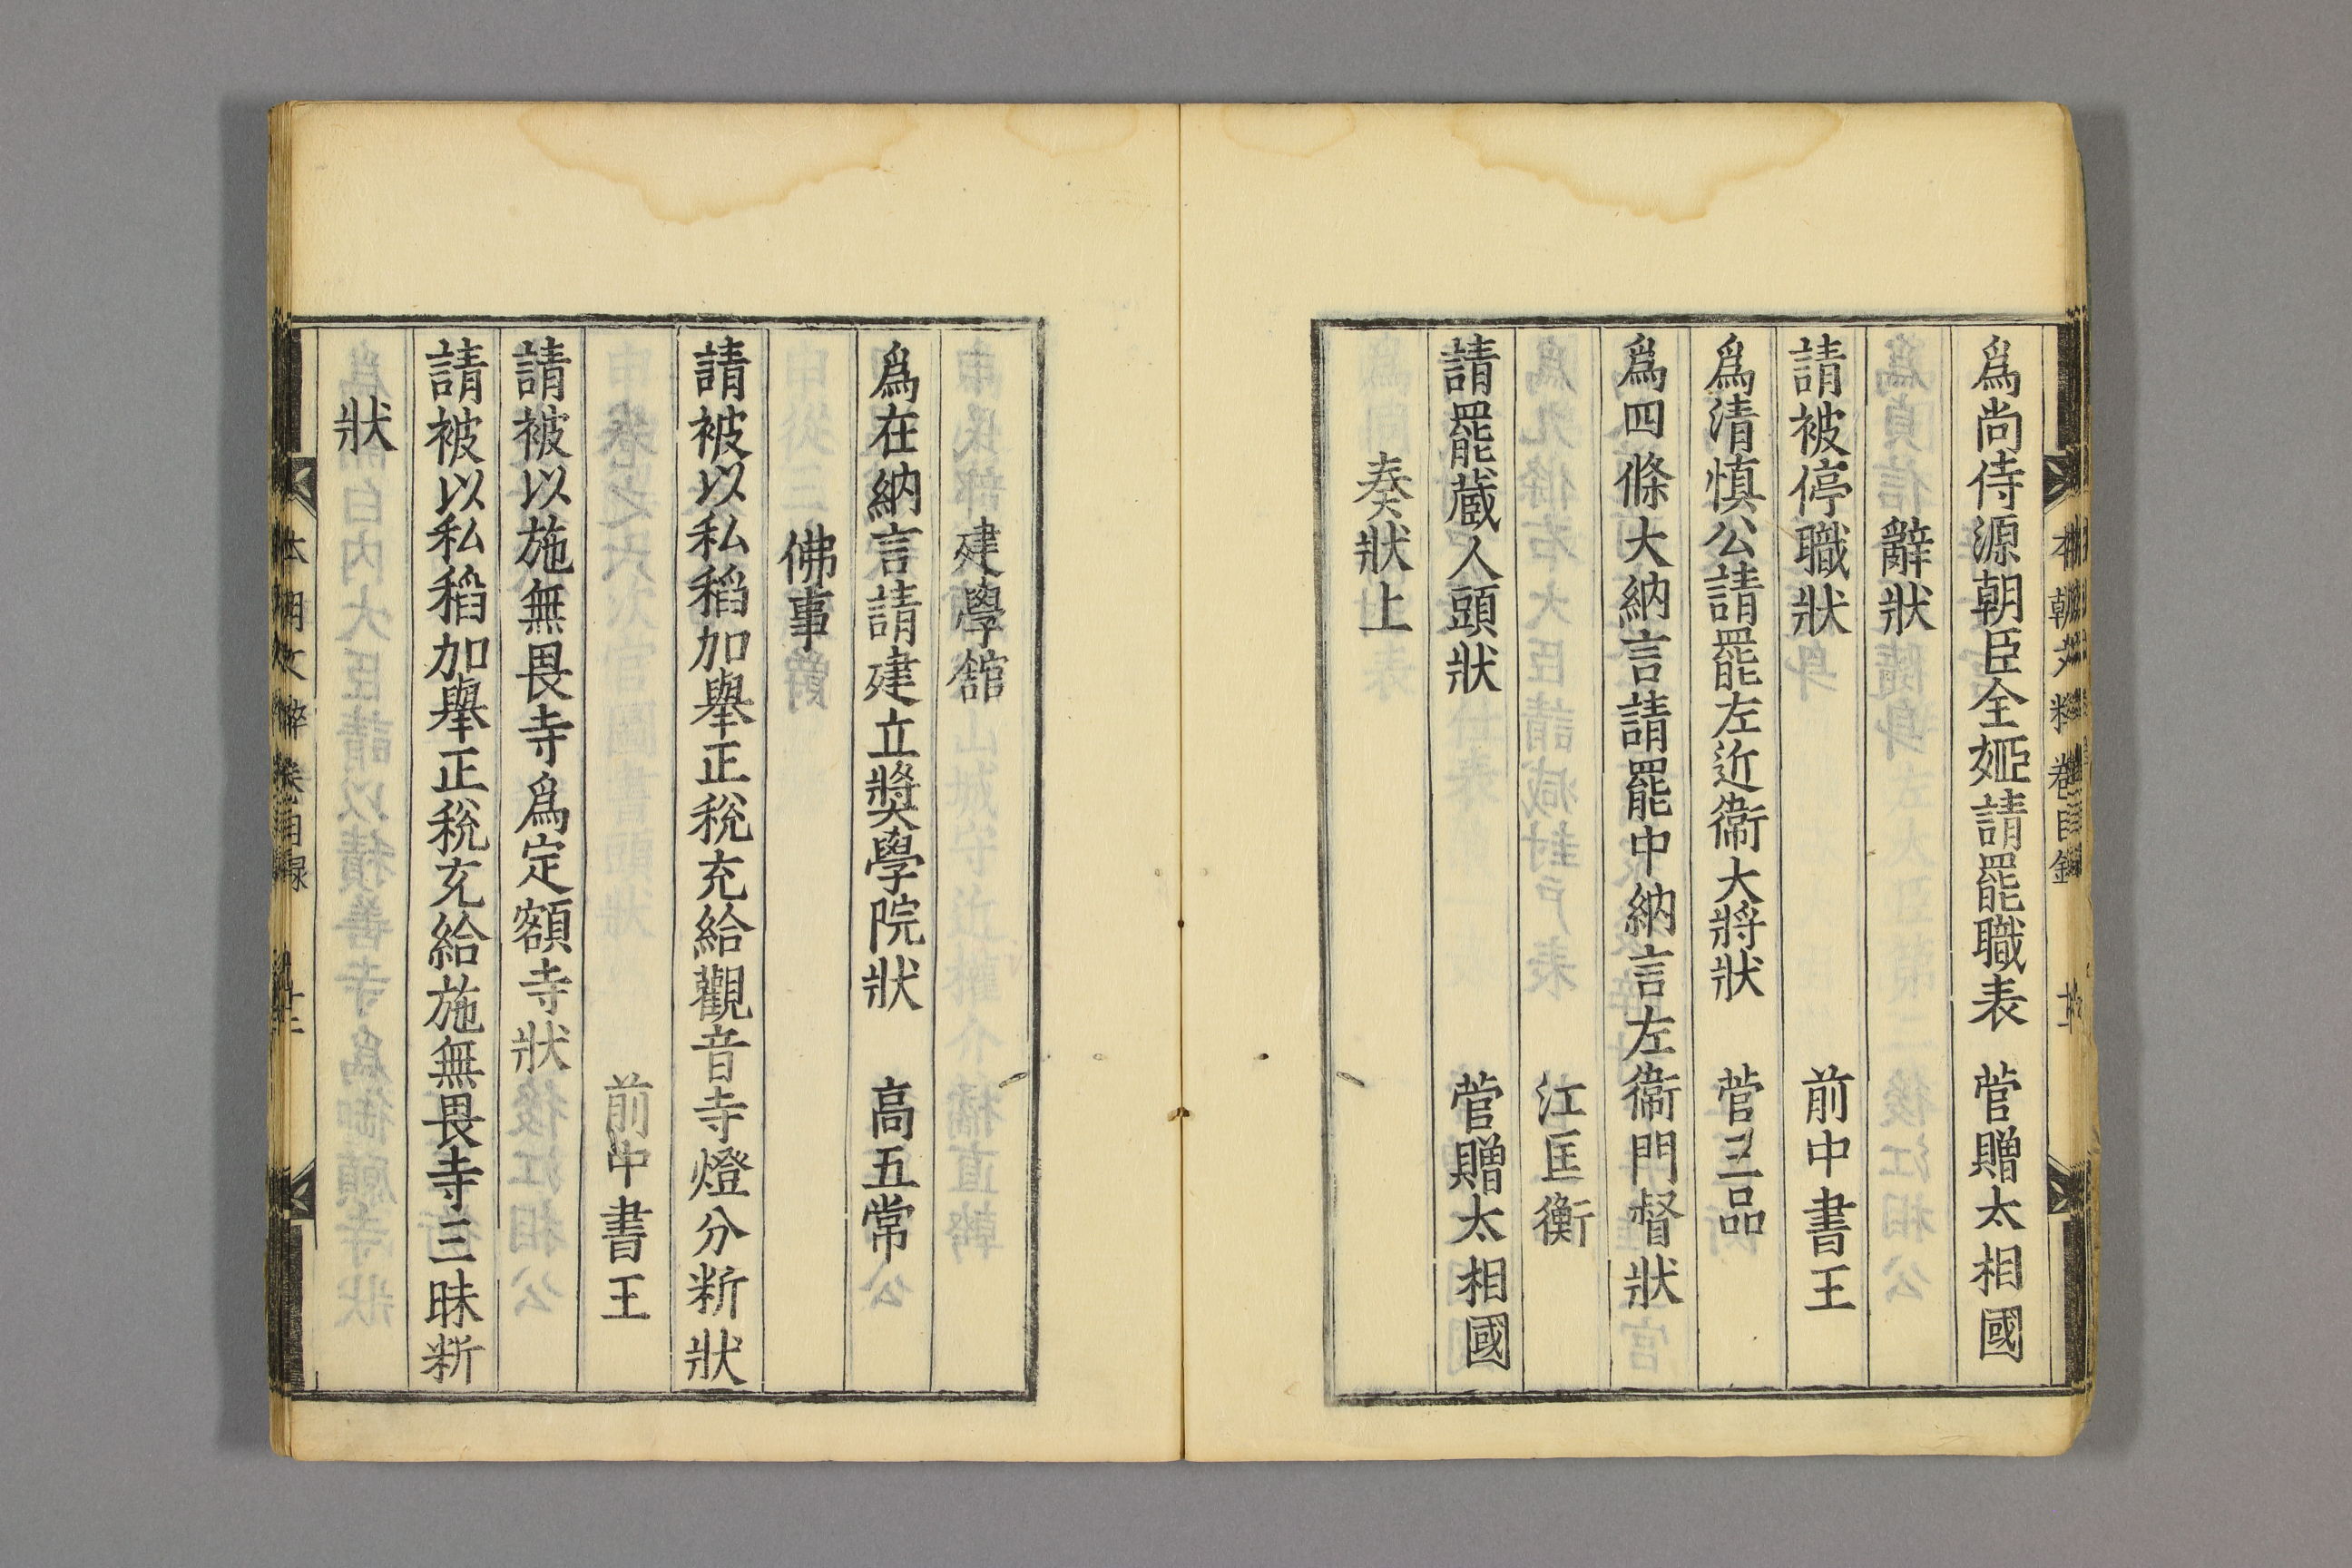 爲尚侍源朝臣全姫請罷職表 菅贈太相國
辭狀
請被停職狀 前中書王
爲清愼公請罷左近衞大將狀 菅三品
爲四條大納言請罷中納言左衞門督狀
江匡衡
請罷蔵人頭狀 菅贈太相國
奏狀上
建學舘
爲在納言請建立奬學院狀 高五常
佛事
請被以私稻加舉正稅充給觀音寺燈分析狀
前中書王
請被以施無畏寺爲定額寺狀
請被以私稻加舉正稅充給施無畏寺三昧析
狀
本朝文粹卷目録